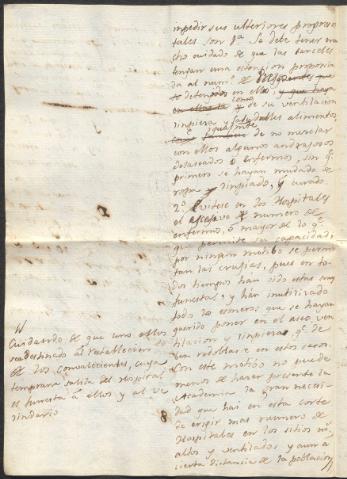 impedir sus ulteriores progresos
tales son 1ª se debe tener mu
cho cuidado de que las carceles
tengan una extension proporcio
nada al num.º de
detenidos en ellas,
como de su ventilacion
limpieza y saludables alimentos
igualmente de no mezclar
con ellos algunos andrajosos
desaseados ó enfermos, sin q.e
primero se hayan mudado de
ropa, limpiado, y curado
2.º Evitese en los Hospitales
el excesivo numero de
enfermos, ó mayor de lo q.e
permite su capacidad,
por ningun motibo se permi
tan las crujias, pues en to
dos tiempos han sido estas muy
funestas, y han inutilizado
todos los esmeros que se hayan
querido poner en el aseo ven
tilacion y limpieza q.e de
ben redoblarse en estos casos.
Con este motibo no puede
menos de hacer presente la
Academia la gran necesi
dad que hay en esta corte
de erigir mas numero de
Hospitales en los sitios mas
altos y ventilados y aun a
cierta distancia de la poblacion
Cuidando de que uno de ellos
sea destinado al restablecim.to
de los convalecientes, cuya
temprana salida del Hospital
es funesta á ellos y al ve
cindario